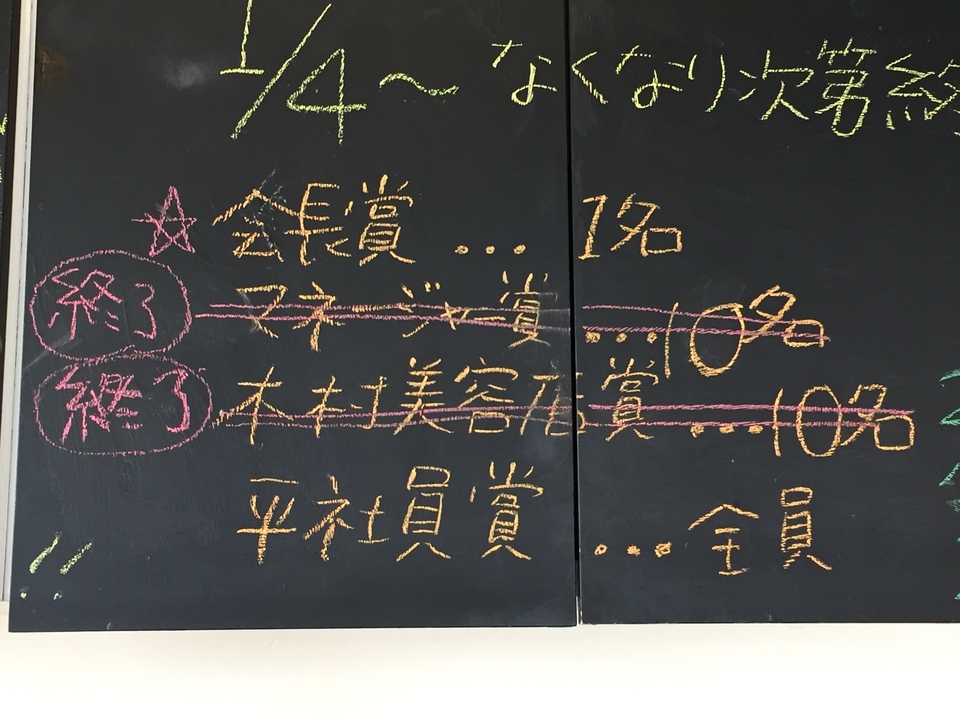 1/4〜なくなり次第終
☆会長賞...1名
終了 マネージャー賞...10名
終了 木村美容店賞...10名
平社員賞...全員
!!